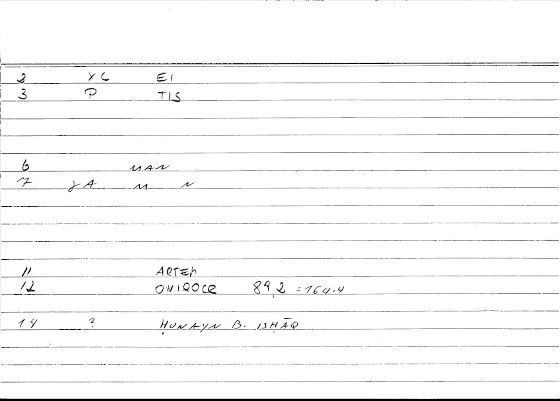 2 γC EI
3 P TIS
6 MAN
7 γA M N
11 ARTEM
12 ONIROCR 89,2 = 164.4
14 ? ḤUNAYN B. ISḤĀQ